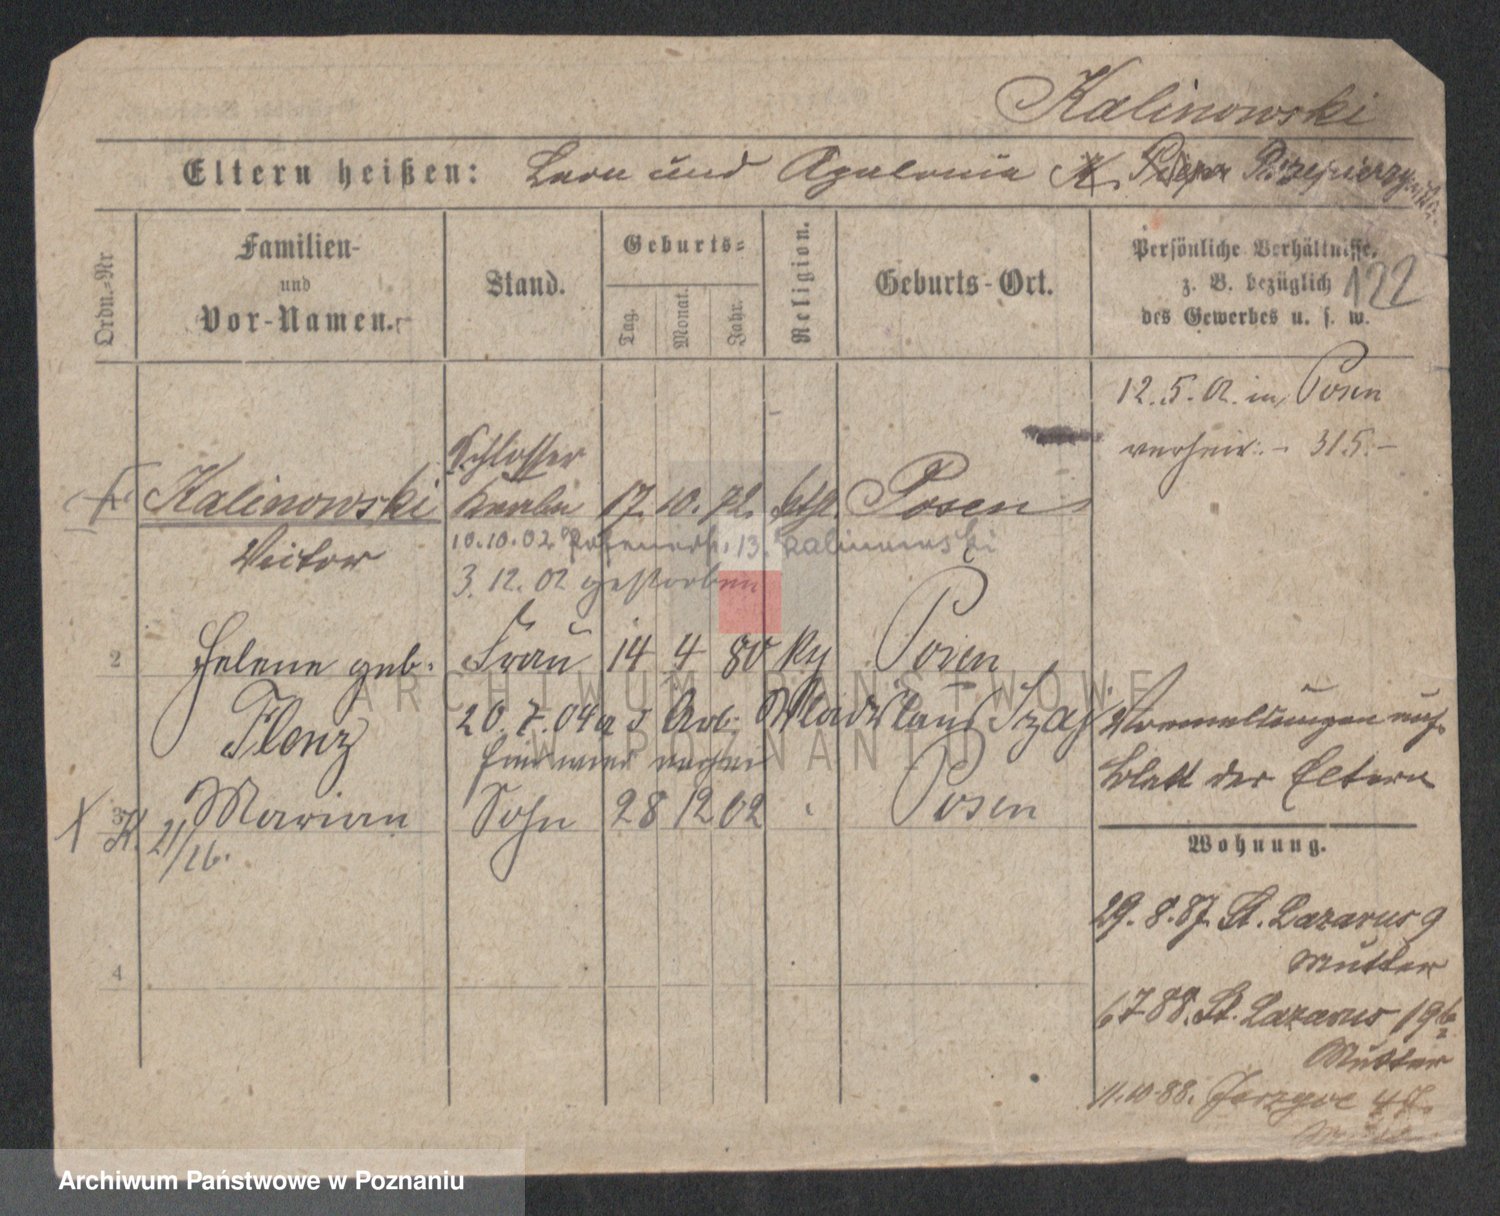 Kalinowski
Eltern heißen: Leon und Apolonia
Ordn.-Nr
Familien-
und
Vor-Namen.
Stand.
Geburts-
Tag.
Monat.
Jahr.
Religion.
Geburts-Ort.
Persönliche Verhältnisse,
z. B. bezüglich
des Gewerbes u. s. w.
122
12.5.02. in Posen
verheir. - 315.-
Schlosser
Kalinowski 17. 10. 72. kth. Posen
Victor
10.10.02 13. Kalinowski
3.12.02 gestorben
2 Helene geb. Frau 14 4 80 Posen
Flenz
20.7.04
Vormeldungen auf
Blatt der Eltern
3 Marian Sohn 28 12 02 Posen
K. 21/16.
Wohnung.
29.8.87. St. Lazarus 9
Mutter
6.7.88. St. Lazarus 19
Mutter
4
11.10.88. Jerzyce 47.
ARCHIWUM PAŃSTWOWE
W POZNANIU
Archiwum Państwowe w Poznaniu